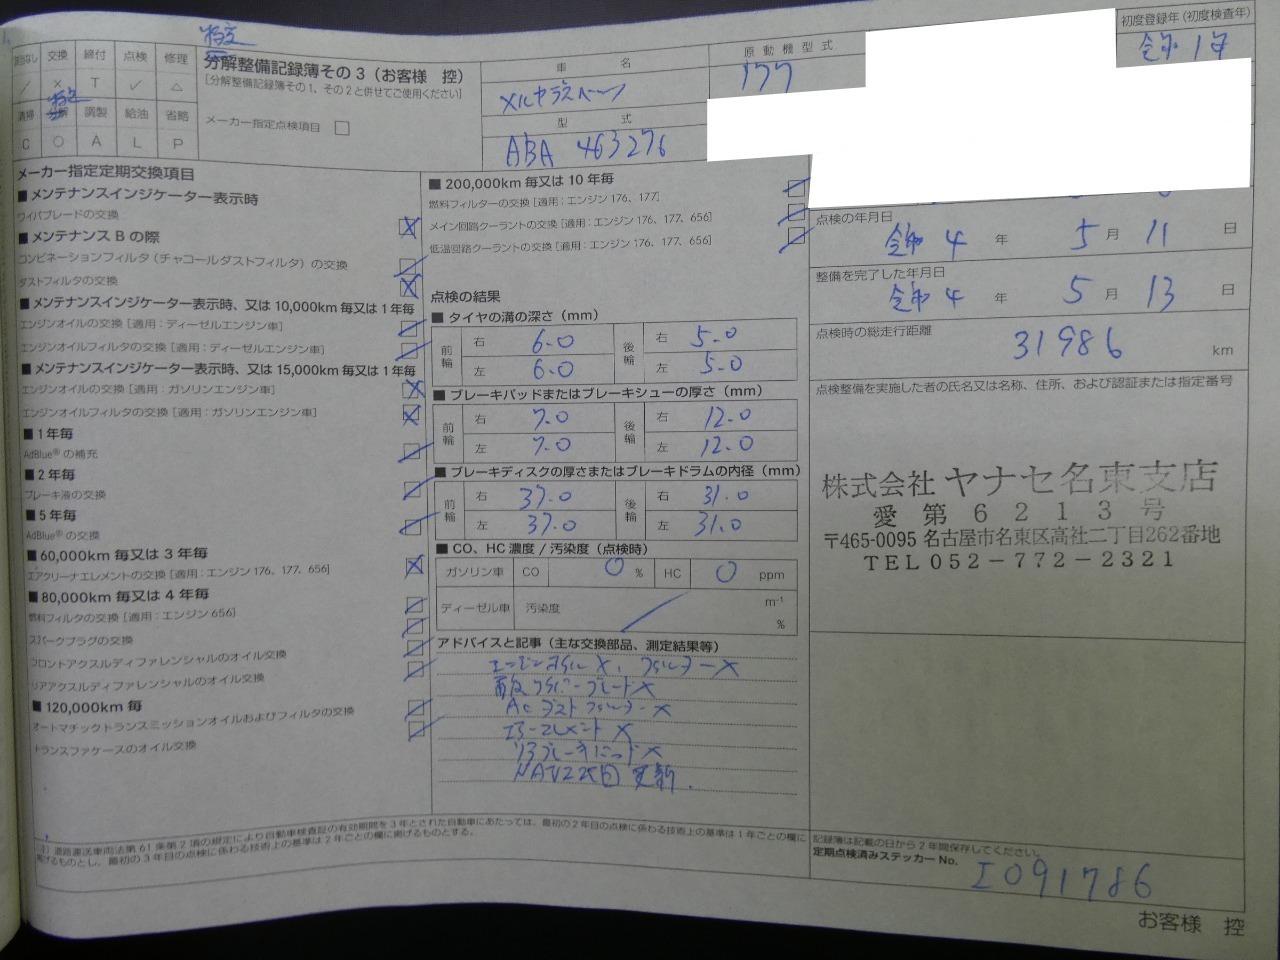 交換 締付 点検 修理
／ × T ✓ △
調製 給油 省略
C ○ A L P
特定
分解整備記録簿その3（お客様 控）
[分解整備記録簿その1、その2と併せてご使用ください]
メーカー指定点検項目 □
車名
メルセデスベンツ
型式
ABA 463276
原動機型式
177
初度登録年（初度検査年）
令和1年
メーカー指定定期交換項目
■メンテナンスインジケーター表示時
ワイパブレードの交換
■メンテナンスBの際
コンビネーションフィルタ（チャコールダストフィルタ）の交換
ダストフィルタの交換
■メンテナンスインジケーター表示時、又は10,000km毎又は1年毎
エンジンオイルの交換［適用：ディーゼルエンジン車］
エンジンオイルフィルタの交換［適用：ディーゼルエンジン車］
■メンテナンスインジケーター表示時、又は15,000km毎又は1年毎
エンジンオイルの交換［適用：ガソリンエンジン車］
エンジンオイルフィルタの交換［適用：ガソリンエンジン車］
■1年毎
AdBlue®の補充
■2年毎
ブレーキ液の交換
■5年毎
AdBlue®の交換
■60,000km毎又は3年毎
エアクリーナエレメントの交換［適用：エンジン176、177、656］
■80,000km毎又は4年毎
燃料フィルタの交換［適用：エンジン656］
スパークプラグの交換
フロントアクスルディファレンシャルのオイル交換
リアアクスルディファレンシャルのオイル交換
■120,000km毎
オートマチックトランスミッションオイルおよびフィルタの交換
トランスファケースのオイル交換
■200,000km毎又は10年毎
燃料フィルターの交換［適用：エンジン176、177］
メイン回路クーラントの交換［適用：エンジン176、177、656］
低温回路クーラントの交換［適用：エンジン176、177、656］
点検の結果
■タイヤの溝の深さ（mm）
前輪 右 6.0 後輪 右 5.0
左 6.0 左 5.0
■ブレーキパッドまたはブレーキシューの厚さ（mm）
前輪 右 7.0 後輪 右 12.0
左 7.0 左 12.0
■ブレーキディスクの厚さまたはブレーキドラムの内径（mm）
前輪 右 37.0 後輪 右 31.0
左 37.0 左 31.0
■CO、HC濃度／汚染度（点検時）
ガソリン車 CO 0 % HC 0 ppm
ディーゼル車 汚染度 m⁻¹
%
アドバイスと記事（主な交換部品、測定結果等）
エンジンオイル×、フィルター×
ワイパーブレード×
ACダストフィルター×
エアーエレメント×
リヤブレーキパッド×
更新.
点検の年月日
令和4年 5月 11日
整備を完了した年月日
令和4年 5月 13日
点検時の総走行距離
31986 km
点検整備を実施した者の氏名又は名称、住所、および認証または指定番号
株式会社ヤナセ名東支店
愛第6213号
〒465-0095 名古屋市名東区高社二丁目262番地
TEL052－772－2321
(注) 道路運送車両法第61条第2項の規定により自動車検査証の有効期間を3年とされた自動車にあたっては、最初の2年目の点検に係わる技術上の基準は1年ごとの欄に
掲げるものとし、最初の3年目の点検に係わる技術上の基準は2年ごとの欄に掲げるものとする。
記録簿は記載の日から2年間保存してください。
定期点検済みステッカーNo.
I091786
お客様 控